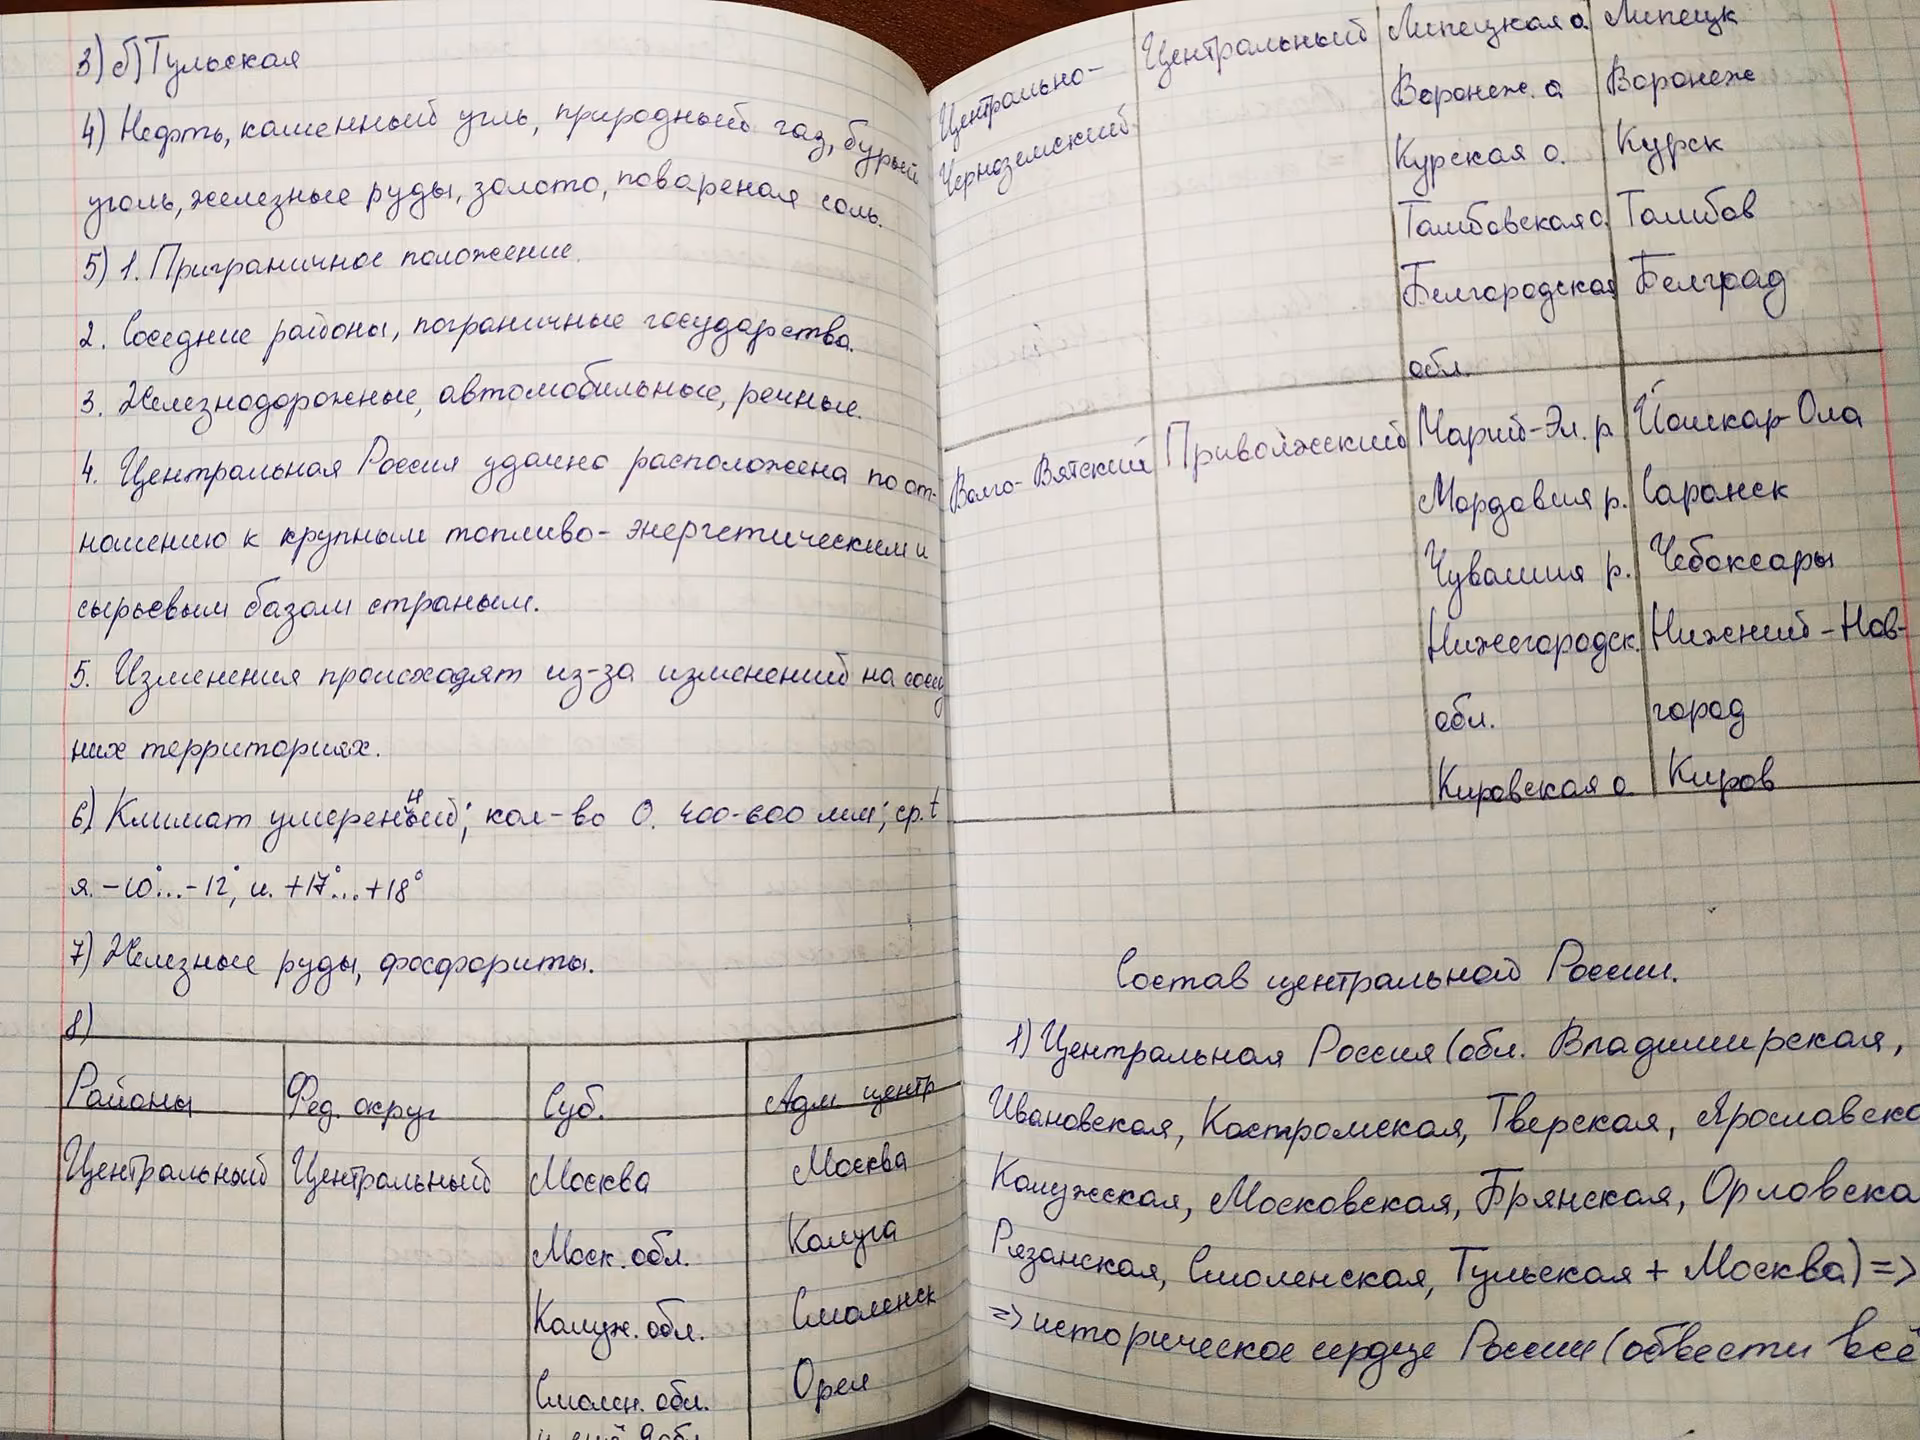 3) б) Тульская
4) Нефть, каменный угль, природный газ, бурый
уголь, железные руды, золото, повареная соль.
5) 1. Приграничное положение.
2. Соседние районы, пограничные государства.
3. Железнодорожные, автомобильные, речные.
4. Центральная Россия удачно расположена по от-
ношению к крупным топливо-энергетическим и
сырьевым базам страным.
5. Изменения происходят из-за изменений на сосед
них территориях.
6) Климат умеренный; кол-во О. 400-600 мм; ср. t
я. -10°...-12°, и. +17°...+18°
7) Железные руды, фосфориты.
8)
Районы Фед. округ Суб. Адм центр
Центральный Центральный Москва Москва
Моск. обл. Калуга
Калуж. обл. Смоленск
Смолен. обл. Орел
Центрально- Центральный Липецкая о. Липецк
Черноземский Воронеж. о Воронеж
Курская о. Курск
Тамбовская о. Тамбов
Белгородская Белград
обл.
Волго-Вятский Приволжский Марий-Эл. р Йошкар-Ола
Мордовия р. Саранск
Чувашия р. Чебоксары
Нижегородск. Нижний-Нов-
обл. город
Кировская о. Киров
Состав центральной России.
1) Центральная Россия (обл. Владимирская,
Ивановская, Костромская, Тверская, Ярославска
Калужская, Московская, Брянская, Орловска
Рязанская, Смоленская, Тульская + Москва) =>
=> историческое сердце России (обвести всё